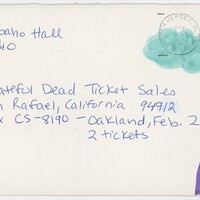 daho Hall
10
ateful Dead Ticket Sales
n Rafael, California 94912
x CS-8190 – Oakland, Feb. 2
2 tickets